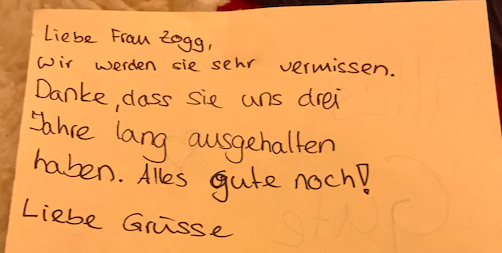 Liebe Frau Zogg,
wir werden sie sehr vermissen.
Danke, dass sie uns drei
Jahre lang ausgehalten
haben. Alles gute noch!
Liebe Grüsse